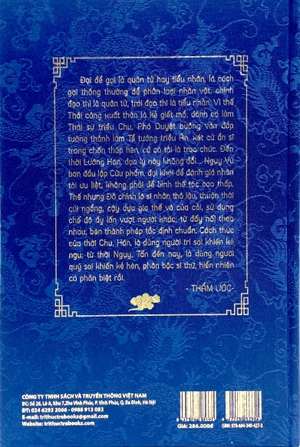 Đại để gọi là quân tử hay tiểu nhân, là cách
gọi thông thường để phân loại nhân vật, chính
đạo thì là quân tử, trái đạo thì là tiểu nhân. Vì thế
Thái công xuất thân là kẻ giết mổ, đánh cá làm
Thái sư triều Chu, Phó Duyệt buông ván đắp
tường thành làm Tể tướng triều Ân, kết cử ẩn sĩ
trong chốn thấp hèn, cứ có tài là trao chức.
Đến thời Lưỡng Hán, đạo lý này không đổi... Ngụy Vũ
ban đầu lập Cửu phẩm, đại khái để đánh giá nhân
tài ưu liệt, không phải để bình thế tộc cao thấp.
Thế nhưng Đô chính là sĩ nhân thô lậu, thuận thời
cúi ngẩng, cậy dựa gia thế và của cải, sử dụng
chế độ ấy lấn vượt người khác; từ đấy nối theo
nhau, bèn thành phép tắc định chuẩn. Cách thức
của thời Chu, Hán, là dùng người trí sai khiến kẻ
ngu; từ thời Ngụy, Tấn đến nay, là dùng người
quý sai khiến kẻ hèn, phân bậc sĩ thứ, hiển nhiên
có phân biệt rồi.
- THẨM ƯỚC-
CÔNG TY TNHH SÁCH VÀ TRUYỀN THÔNG VIỆT NAM
ĐT: 024 6293 2066 - 0988 913 083
E-mail: trithuctrebooks@gmail.com
Website: trithuctrebooks.com
GIÁ: 286.000Đ